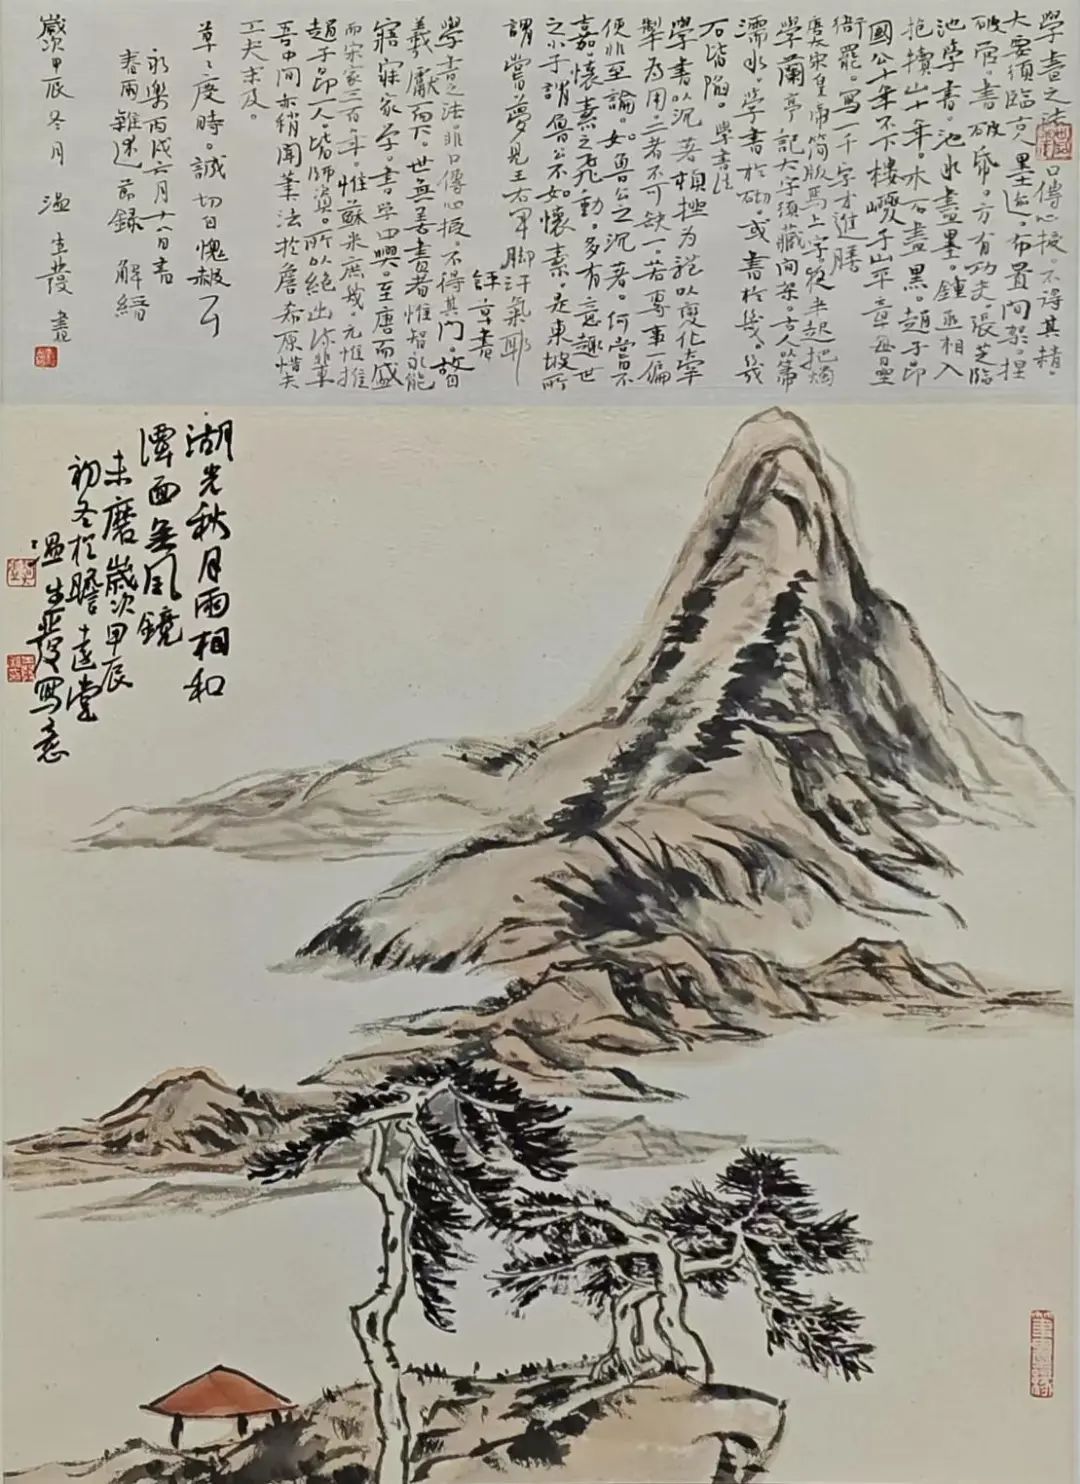 學書之法。非口傳心授。不得其精。
大要須臨古人墨迹。布置間架。捏
破管。書破紙。方有功夫。張芝臨
池學書。池水盡墨。鍾丞相入
抱犢山十年。木石盡黑。趙子昂
國公十年不下樓。巙子山平章每日坐
衙罷。寫一千字才進膳
唐太宗皇帝簡版馬上字夜半起把燭
學蘭亭記大字須藏間架。古人以箒
濡水。學書於砌。或書於几。几
石皆陷。學書法
學書以沉著頓挫為體以變化牽
掣為用。二者不可缺一。若專事一偏
便非至論。如魯公之沉著。何嘗不
嘉。懷素之飛動。多有意趣世
之小子謂魯公不如懷素。是東坡所
謂嘗夢見王右軍腳汗氣耶
評草書
學書之法。非口傳心授。不得其門。故自
羲獻而下。世無善書者惟智永能
寤寐家學。書學中興。至唐而盛
而宋家三百年。惟蘇米庶幾。元惟
趙子昂一人。皆師資。所以絕出流輩
吾中間亦稍聞筆法於詹希原惜夫
工夫未及。
草草度時。誠切自愧赧云
永樂丙戌六月十八日書
春雨雜述 節錄 解縉
歲次甲辰冬月 溫生發書
湖光秋月兩相和
潭面無風鏡
未磨 歲次甲辰
初冬於瞻遠堂
溫生發寫意